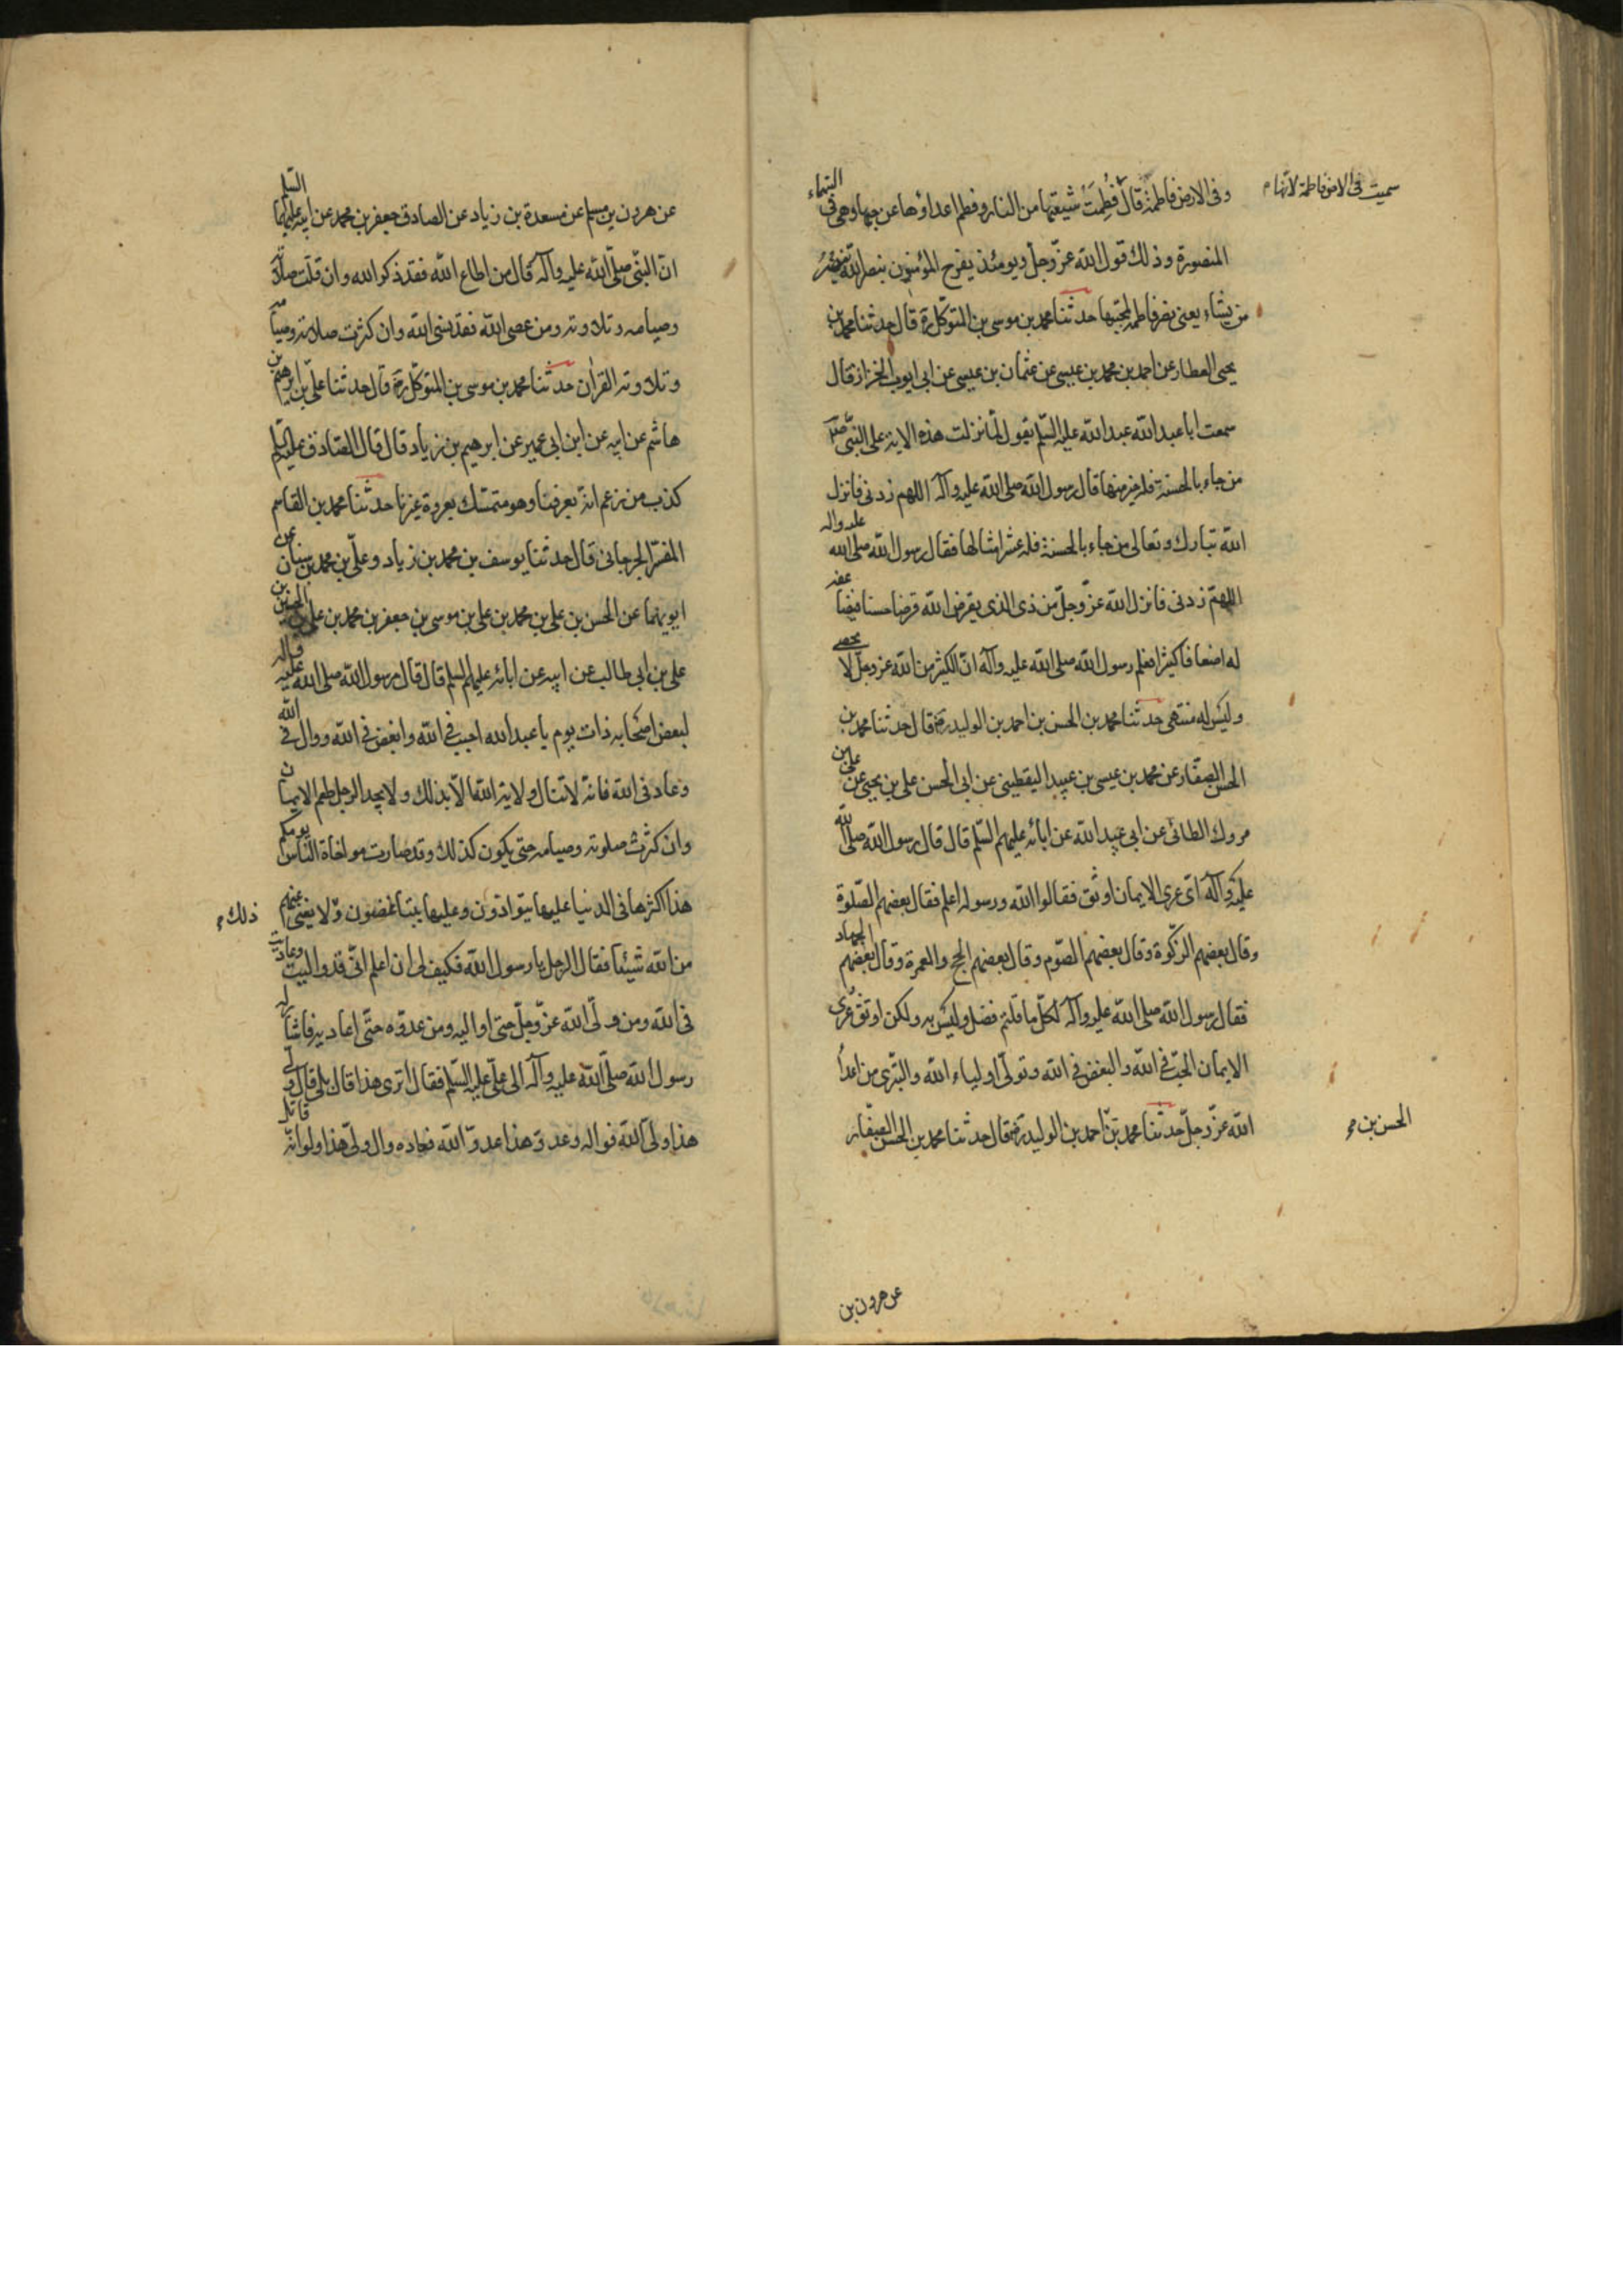 سميت فى الارض فاطمة لانها م
وفى الارض فاطمة قال فُطِمَتْ شيعتها من النار وفطم اعداؤها عن حبها وهى فى السماء
المنصورة وذلك قول الله عزّ وجلّ ويومئذ يفرح المؤمنون بنصر الله ينصرُ
من يشاء يعنى نصر فاطمة لمحبيها حدثنا محمد بن موسى بن المتوكل ره قال حدثنا محمد بن
يحيى العطار عن احمد بن محمد بن عيسى عن عثمان بن عيسى عن ابى ايوب الخزاز قال
سمعت ابا عبد الله عبد الله عليه السلم يقول لما نزلت هذه الاية على النبى
من جاء بالحسنة فله خير منها قال رسول الله صلى الله عليه وآله اللهم زدنى فانزل
الله تبارك وتعالى من جاء بالحسنة فله عشر امثالها فقال رسول الله صلى الله عليه واله
اللهمّ زدنى فانزل الله عزّ وجلّ من ذى الذى يقرض الله قرضا حسنا فيضاعفه
له اضعافا كثيرا فعلم رسول الله صلى الله عليه وآله انّ الكثير من الله عز وجل لا يحصى
وليس له منتهى حدثنا محمد بن الحسن بن احمد بن الوليد ره قال حدثنا محمد بن
الحسن الصفّار عن محمد بن عيسى بن عبيد اليقطينى عن ابى الحسن على بن يحيى عن على بن
مروك الطائى عن ابى عبد الله عن ابائه عليهم السلم قال قال رسول الله صلى الله
عليه وآله اىّ عرى الايمان اوثق فقالوا الله ورسوله اعلم فقال بعضهم الصّلوة
وقال بعضهم الزكوة وقال بعضهم الصّوم وقال بعضهم الحج والعمرة وقال بعضهم الجهاد
فقال رسول الله صلى الله عليه وآله لكلّ ما قلتم فضل وليس به ولكن اوثق عُرى
الايمان الحبّ فى الله والبغض فى الله وتولّى اولياء الله والتبرّى من اعداء
الله عزّ وجلّ حدثنا محمد بن احمد بن الوليد ره قال حدثنا محمد بن الحسن الصفّار
الحسن بن م
عن هرون بن
عن هرون بن مسلم عن مسعدة بن زياد عن الصادق جعفر بن محمد عن ابيه عليهما السلم
انّ النبّى صلى الله عليه وآله قال من اطاع الله فقد ذكر الله وان قلّت صلاته
وصيامه وتلاوته ومن عصى الله فقد نسى الله وان كثرت صلاته وصيامه
وتلاوته القران حدثنا محمد بن موسى بن المتوكّل ره قال حدثنا علىّ بن ابرهيم بن
هاشم عن ابيه عن ابن ابى عمير عن ابرهيم بن زياد قال قال الصّادق عليه السلم
كذب من زعم انّه يعرفنا وهو متمسّك بعروة غيرنا حدثنا محمد بن القاسم
المفسّر الجرجانى قال حدثنا يوسف بن محمد بن زياد وعلىّ بن محمد بن سنان عن
ابويهما عن الحسن بن على بن محمد بن على بن موسى بن جعفر بن محمد بن على بن الحسين بن
على بن ابى طالب عن ابيه عن ابائه عليهم السلم قال قال رسول الله صلى الله عليه واله
لبعض اصحابه ذات يوم يا عبد الله احبب فى الله وابغض فى الله ووال فى الله
وعاد فى الله فانّه لا تنال ولاية الله الّا بذلك ولا يجد الرجل طعم الايمان
وان كثرت صلوته وصيامه حتى يكون كذلك وقد صارت مواخاة الناس يومكم
هذا اكثرها فى الدنيا عليها يتوادّون وعليها يتباغضون ولا يغنى عنهم
ذلك م
من الله شيئا فقال الرجل يا رسول الله فكيف لى ان اعلم انّى قد واليت وعاديت
فى الله ومن ولىّ الله عزّ وجلّ حتى اواليه ومن عدوّه حتّى اعاديه فاشار له
رسول الله صلّى الله عليه وآله الى علىّ عليه السّلم فقال اترى هذا قال بلى قال ولىّ
هذا ولىّ الله فواله وعدوّ هذا عدوّ الله فعاده وال ولىّ هذا ولو انّه قاتل